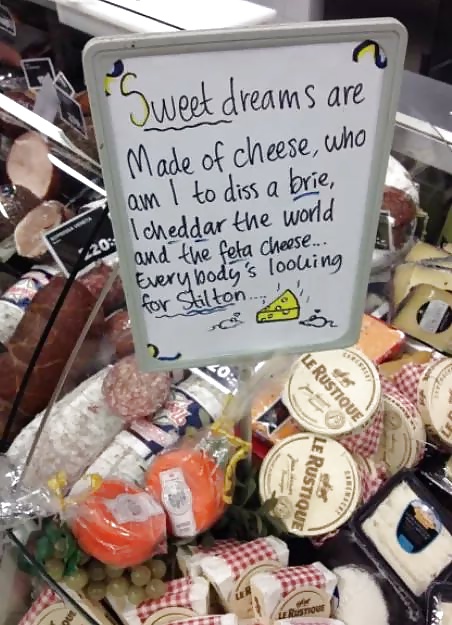 Sweet dreams are
Made of cheese, who
am I to diss a brie,
I cheddar the world
and the feta cheese...
Everybody's looking
for Stilton....
CAMEMBERT
LE RUSTIQUE
LE RUSTIQUE
LE RUSTIQUE